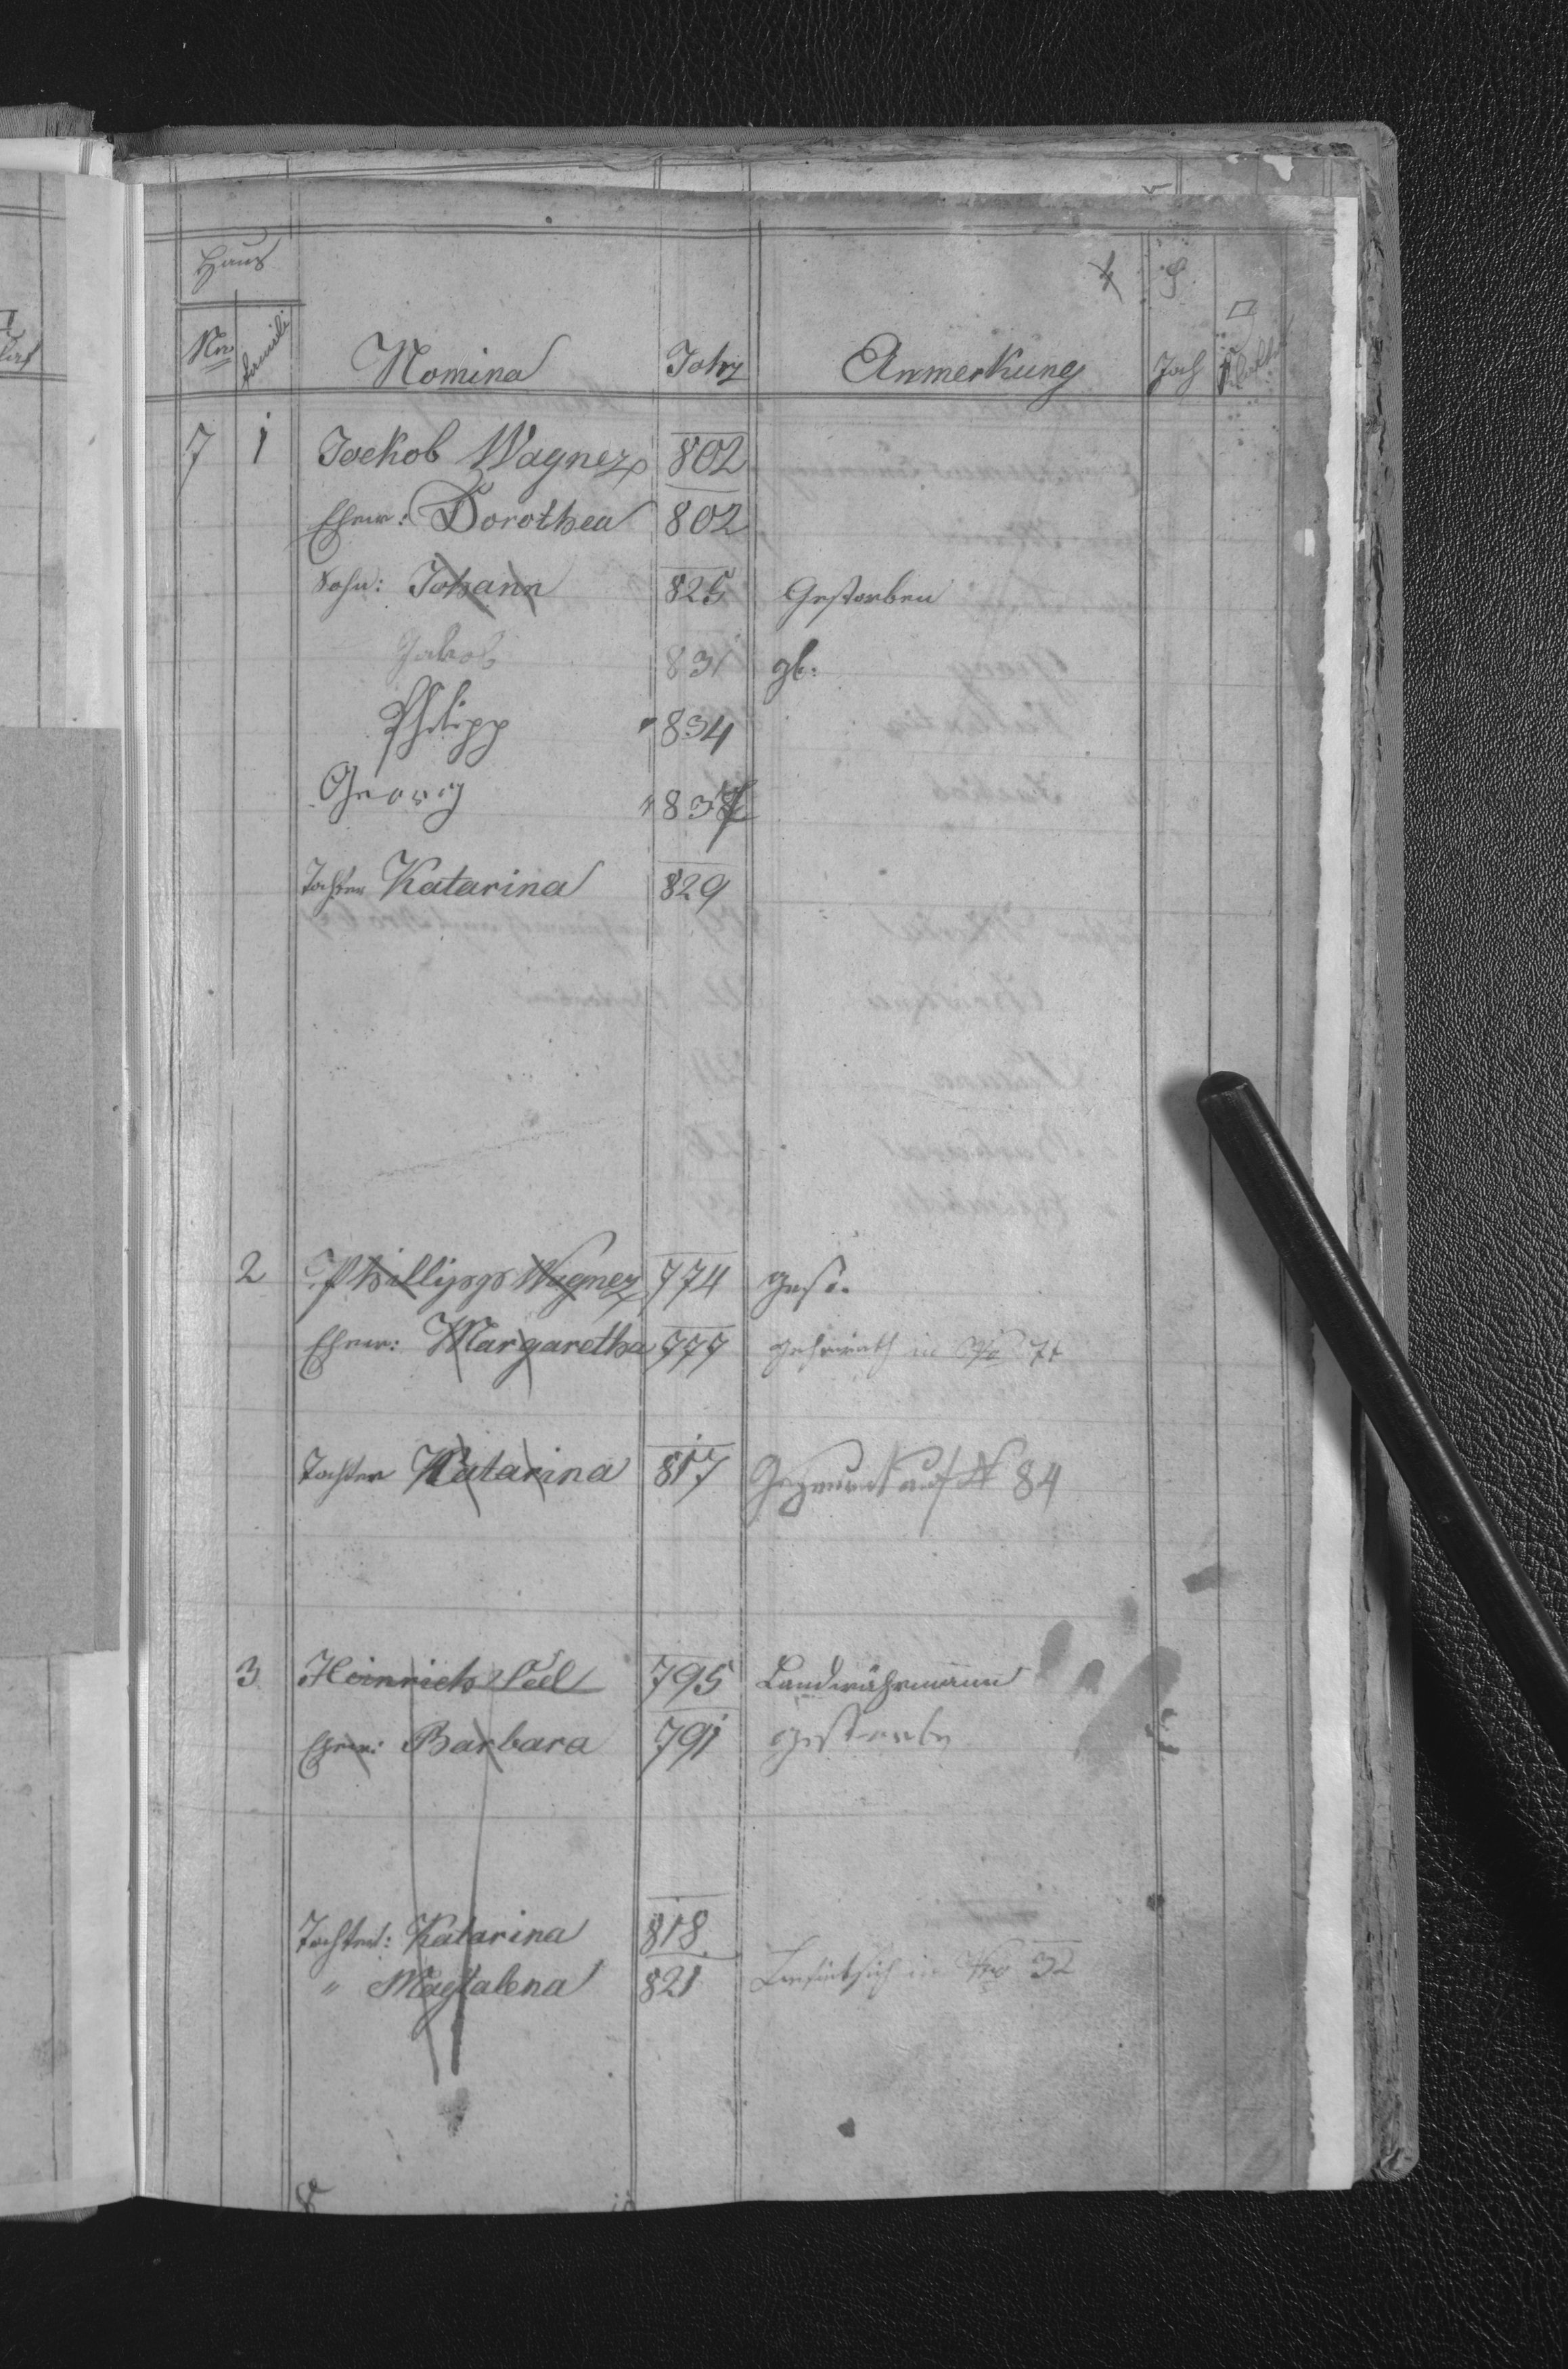 Haus
Nro Famili Nomina Jahr Anmerkung Joch
7 1 Jockob Wagner 802
Ehew: Dorothea 802
Sohn: Johann 825 Gestorben
Jakob 831 gst.
Philipp 834
Georg 837
Tochter Katarina 829
2 Phillipp Wagner 774 gest.
Ehew: Margaretha 777 geheirath in No 74
Tochter Katarina 817 auf N 84
3 Heinrich 795 Landwährmann
Ehew: Barbara 791 gestorben
Tochter: Katarina 818
" Magtalena 821 Befindt sich in Nro 32